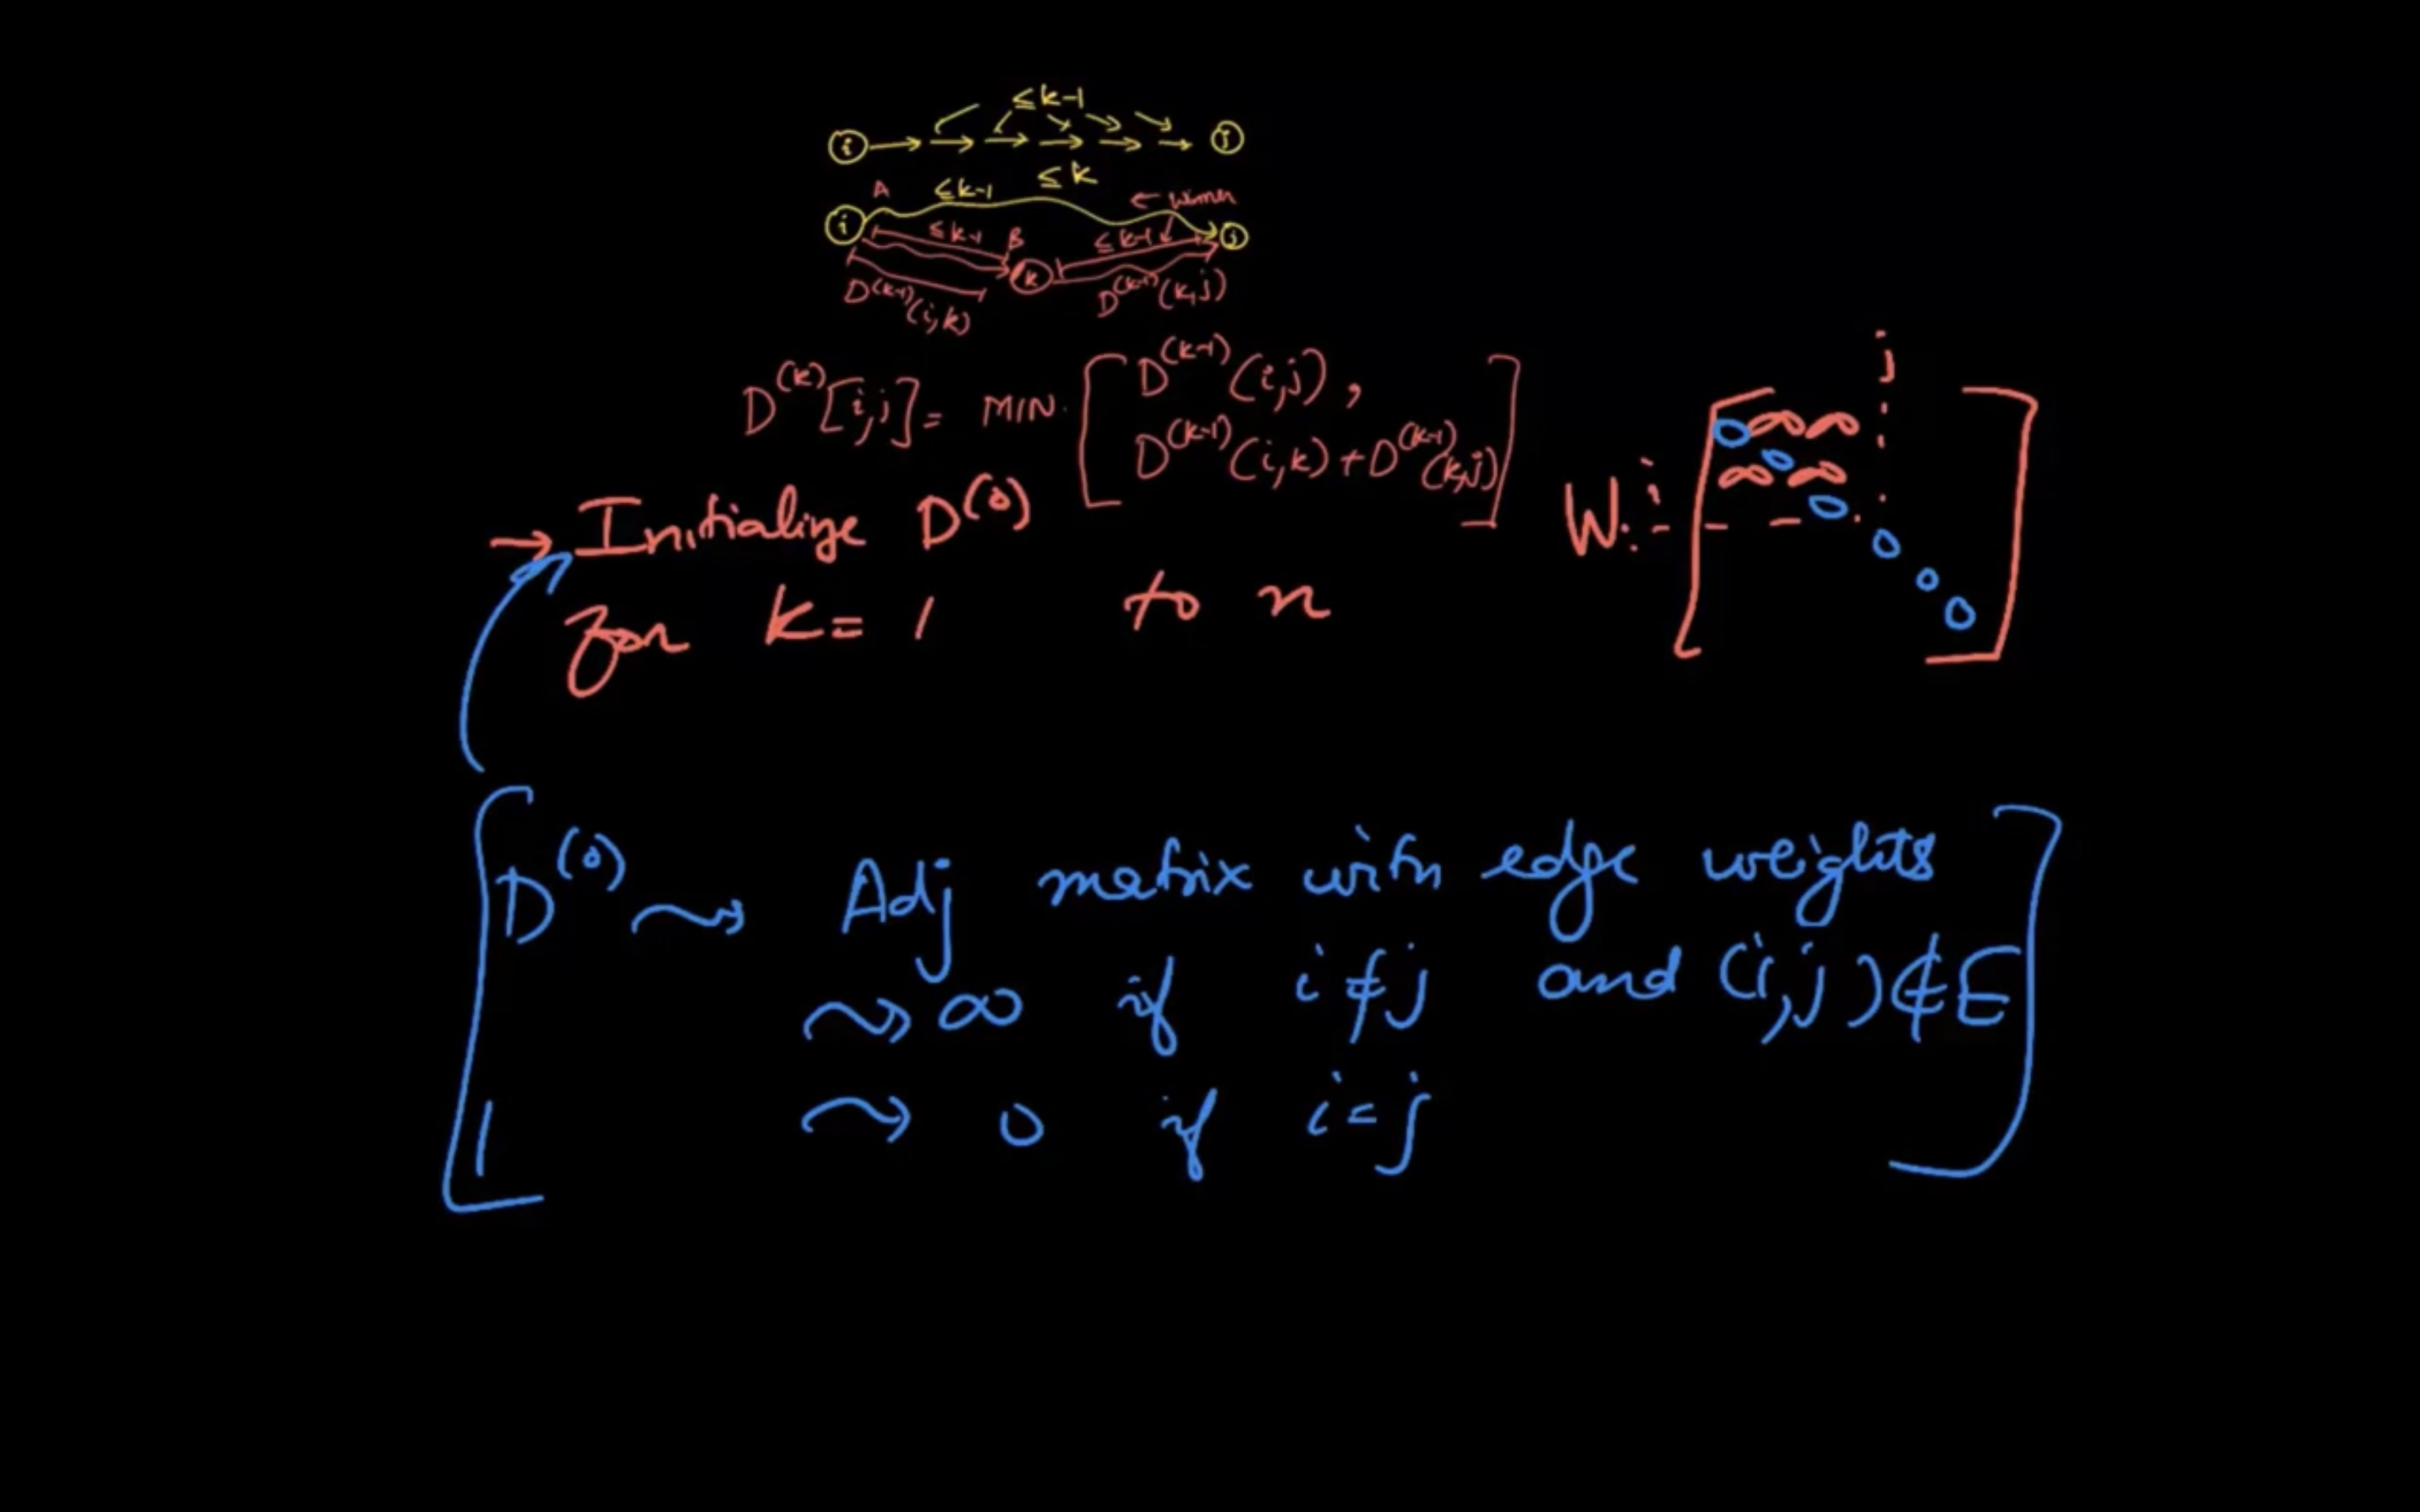 ≤ k-1
i j
≤ k
A ≤ k-1 ← Winner
i ≤ k-1 B ≤ k-1 j
k
D^(k-1)(i,k) D^(k-1)(k,j)
D^(k)[i,j] = MIN. [ D^(k-1)(i,j),
D^(k-1)(i,k) + D^(k-1)(k,j) ]
j
W i ∞ ∞
∞ ∞
0 0 0 0 0 0
→ Initialize D^(0)
for k = 1 to n
D^(0) ⇝ Adj matrix with edge weights
⇝ ∞ if i ≠ j and (i,j) ∉ E
⇝ 0 if i = j